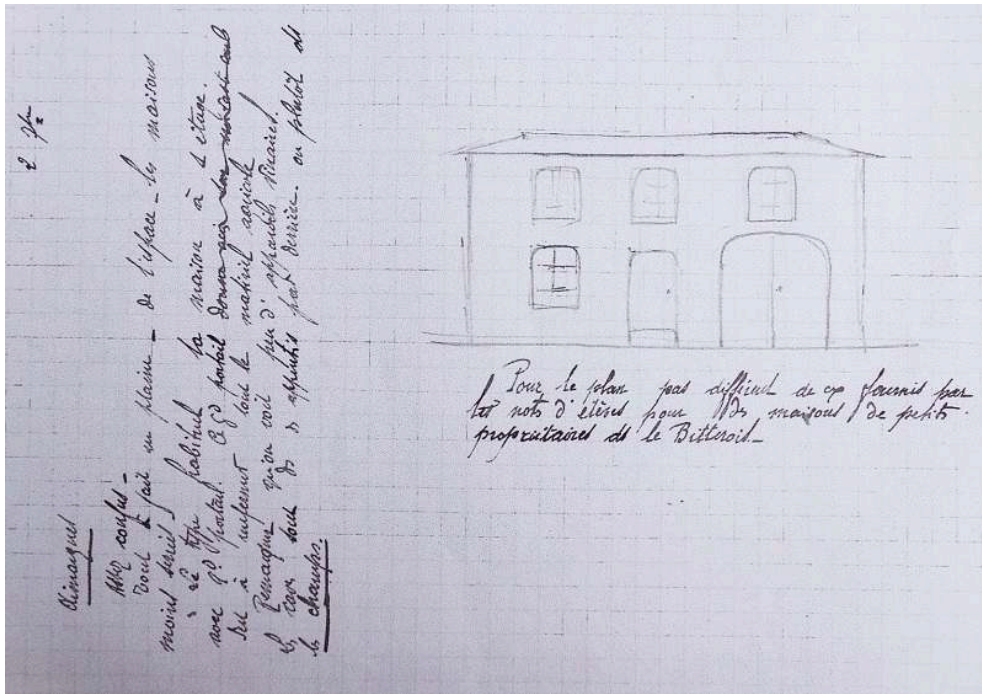 Aimargues
Assez confus -
Tout à fait en plaine - de l'espace - les maisons
moins
type habituel la maison à 1 étage.
avec gd portail. Ce gd portail
sert à enfermer tout le matériel agricole
Remarquer qu'on voit peu d'appareils vinaires.
les caves sont ds des appentis par derrière ou plutôt ds
les champs.
Pour le plan pas différent de ceux fournis par
les nots d'élèves pour des maisons de petits
propriétaires ds le Bitterois_